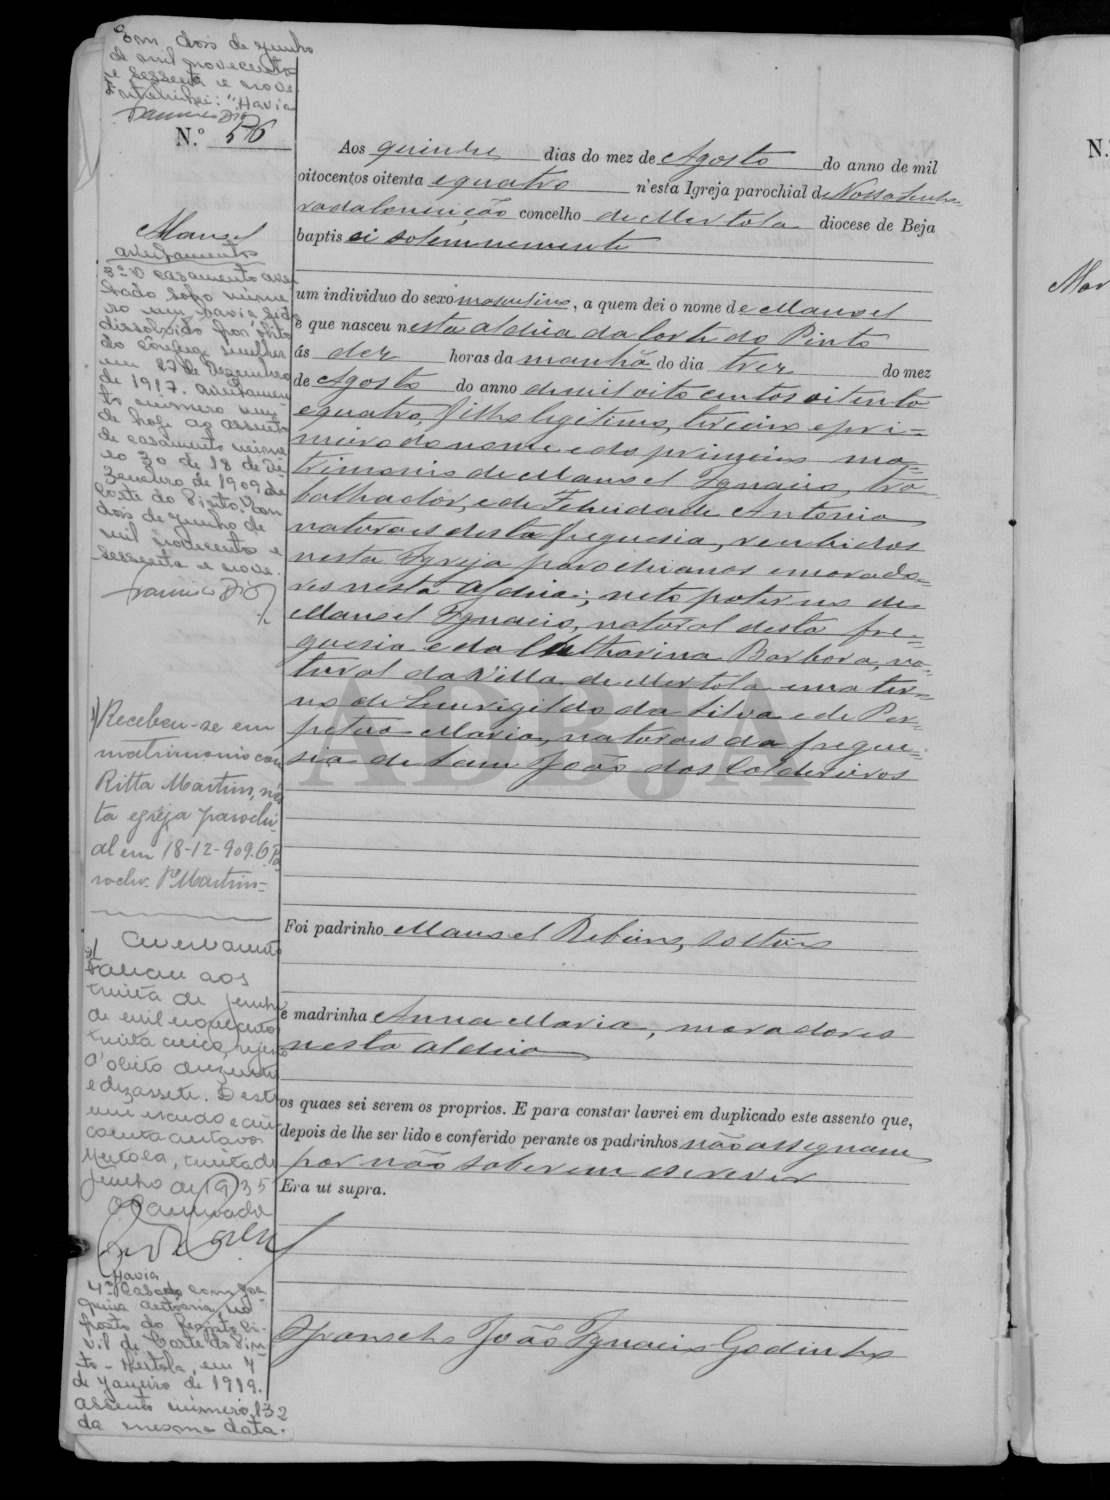 Em dois de junho
de mil novecentos
e sessenta e nove
"Havia
N.º 56
Manuel
Averbamentos
3º O casamento aver
bado sob o núme
ro um havia sido
dissolvido por óbito
do cônjuge mulher
em 27 de Dezembro
de 1917. Averbamen
to número um
de hoje ao assento
de casamento núme
ro 30 de 18 de De
zembro de 1909 de
Corte do Pinto. Em
dois de junho de
mil novecentos e
sessenta e nove.
1) Recebeu-se em
matrimonio com
Ritta Martins, nes
ta egreja parochi
al em 18-12-909. O Pa
rocho. Pe Martins=
Averbamento
2) Faleceu aos
trinta de junho
de mil novecentos
trinta e cinco, registo
d'obito duzentos
e dezassete. Desta
um escudo e cin
coenta centavos
Mertola, trinta de
junho de 1935
Havia
4º Casado com Joa
quina Antonia, no
posto do Registo Ci-
vil de Corte do Pin-
to - Mertola, em 7
de Janeiro de 1919.
assento número 132
da mesma data.
Aos quinze dias do mez de Agosto do anno de mil
oitocentos oitenta e quatro n'esta Igreja parochial de Nossa Senho-
ra da Conceição concelho de Mertola diocese de Beja
baptisei solemnemente
um individuo do sexo masculino, a quem dei o nome de Manoel
e que nasceu nesta aldeia da Corte do Pinto
ás dez horas da manhã do dia trez do mez
de Agosto do anno de mil oito centos oitenta
e quatro, filho legitimo, terceiro e pri=
meiro do nome e do primeiro ma=
trimonio de Manoel Ignacio, tra-
balhador, e de Felicidade Antonia
naturaes desta freguesia, recebidos
nesta Igreja parochianos e morado=
res nesta Aldeia; neto paterno de
Manoel Ignacio, natural desta fre=
guesia e da Catharina Barbora, na-
tural da Villa de Mertola e mater=
no de Lourigildo da Silva e de Per-
petua Maria, naturaes da fregue-
sia de Sam João dos Caldeireiros
Foi padrinho Manoel solteiro
e madrinha Anna Maria, moradores
nesta aldeia
os quaes sei serem os proprios. E para constar lavrei em duplicado este assento que,
depois de lhe ser lido e conferido perante os padrinhos não assignam
por não saberem escrever
Era ut supra.
João Ignacio Godinho
ADBJA
N.
Mar